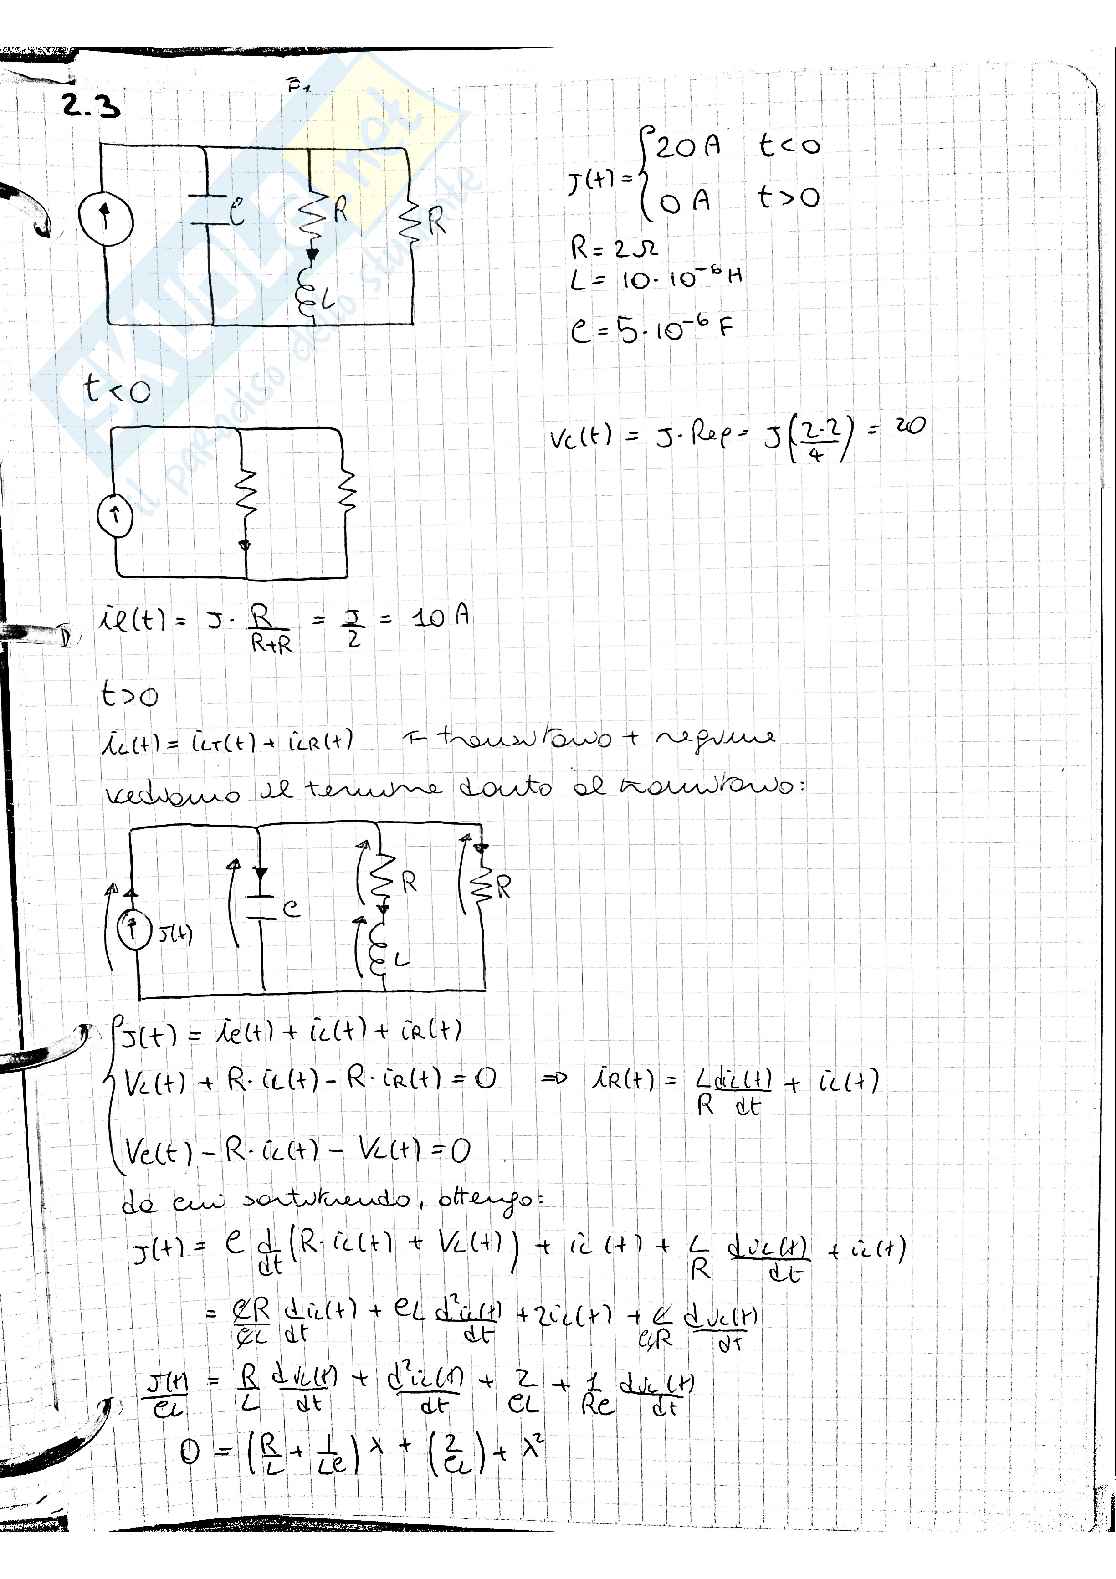 P1
2.3
J(t) = { 20 A t<0
0 A t>0
C R R
L
R = 2Ω
L = 10·10⁻⁶ H
C = 5·10⁻⁶ F
SKUOLA.net
il paradiso dello studente
t<0
Vc(t) = J·Rep = J(2·2/4) = 20
il(t) = J· R/(R+R) = J/2 = 10 A
t>0
iL(t) = iLT(t) + iLR(t) ← transitorio + regime
vediamo il termine dovuto al transitorio:
J(t) C R L R
{ J(t) = ic(t) + iL(t) + iR(t)
VL(t) + R·iL(t) – R·iR(t) = 0 ⇒ iR(t) = L/R diL(t)/dt + iL(t)
Vc(t) – R·iL(t) – VL(t) = 0
da cui sostituendo, ottengo:
J(t) = C d/dt (R·iL(t) + VL(t)) + iL(t) + L/R diL(t)/dt + iL(t)
= CR/CL diL(t)/dt + CL d²iL(t)/dt + 2iL(t) + L/CLR diL(t)/dt
J(t)/CL = R/L diL(t)/dt + d²iL(t)/dt + 2/CL + 1/RC diL(t)/dt
0 = (R/L + 1/LC) λ + (2/CL) + λ²